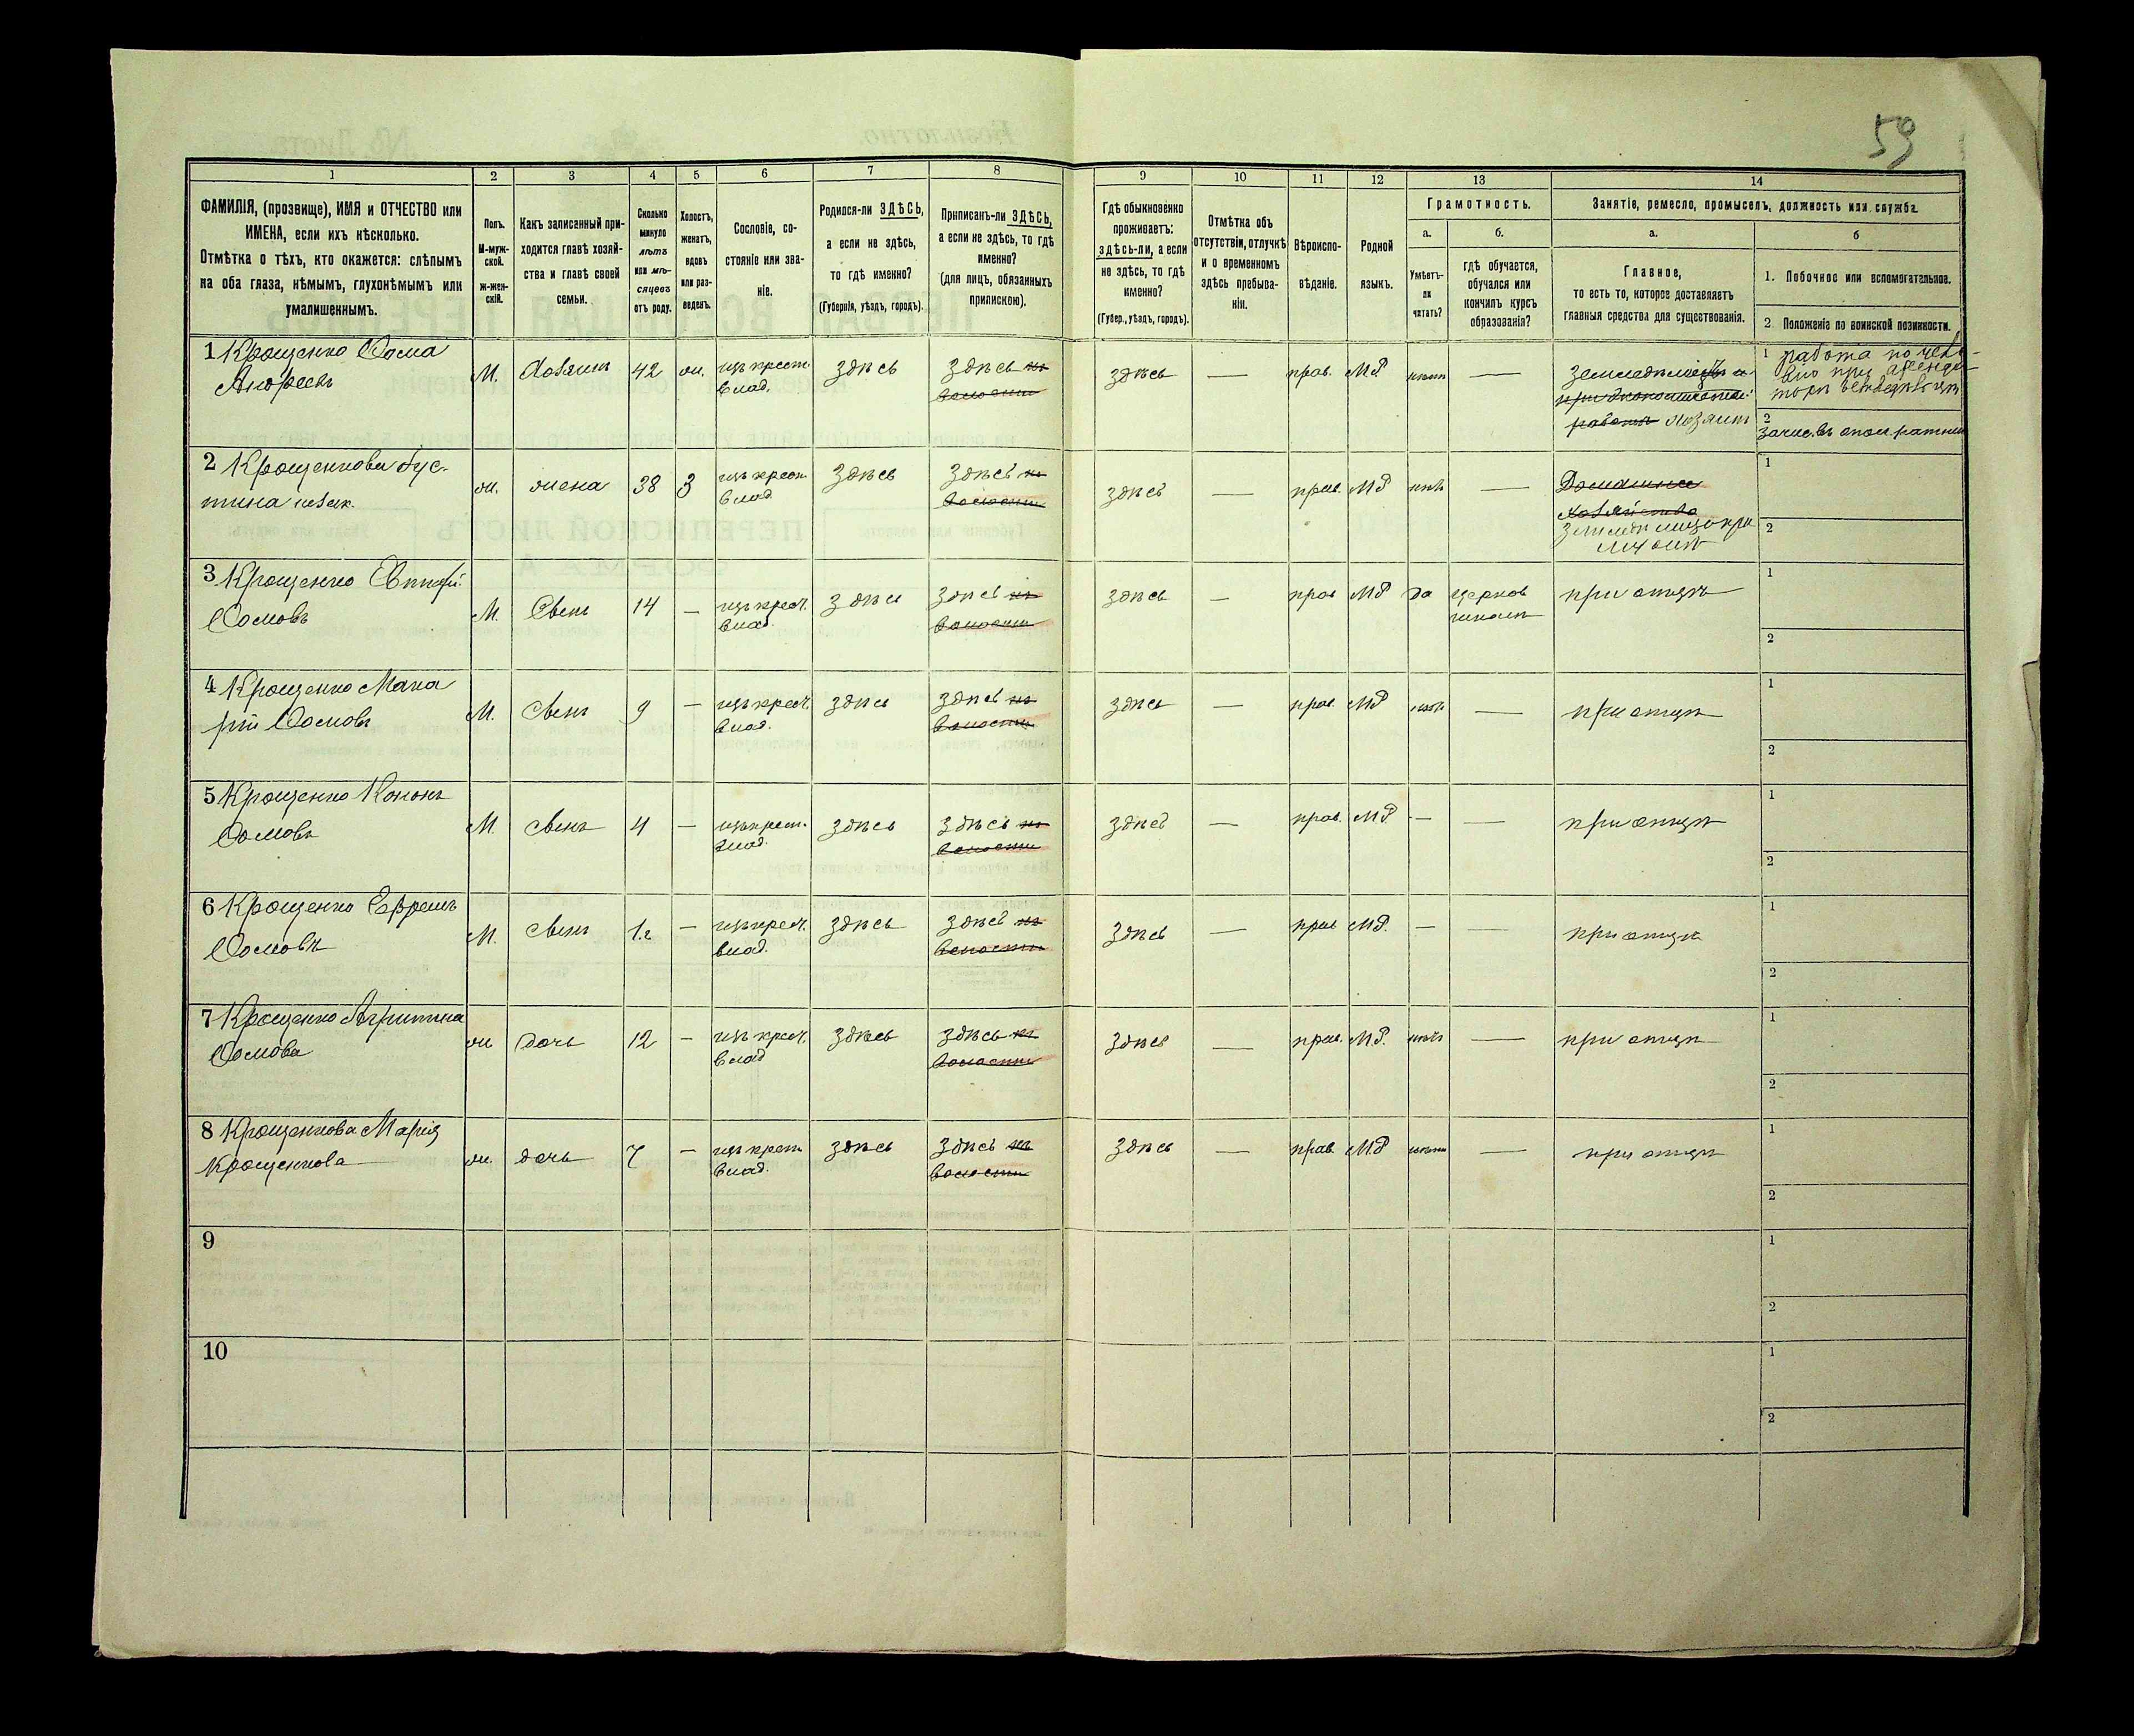 59
1 2 3 4 5 6 7 8 9 10 11 12 13 14
ФАМИЛІЯ, (прозвище), ИМЯ и ОТЧЕСТВО или
ИМЕНА, если ихъ нѣсколько.
Отмѣтка о тѣхъ, кто окажется: слѣпымъ
на оба глаза, нѣмымъ, глухонѣмымъ или
умалишеннымъ.
Полъ.
М-муж-
ской.
Ж-жен-
скій.
Какъ записанный при-
ходится главѣ хозяй-
ства и главѣ своей
семьи.
Сколько
минуло
лѣтъ
или мѣ-
сяцевъ
отъ роду.
Холостъ,
женатъ,
вдовъ
или раз-
веденъ.
Сословіе, со-
стояніе или зва-
ніе.
Родился-ли ЗДѢСЬ,
а если не здѣсь,
то гдѣ именно?
(Губернія, уѣздъ, городъ).
Приписанъ-ли ЗДѢСЬ,
а если не здѣсь, то гдѣ
именно?
(для лицъ, обязанныхъ
припискою).
Гдѣ обыкновенно
проживаетъ:
здѣсь-ли, а если
не здѣсь, то гдѣ
именно?
(Губер., уѣздъ, городъ).
Отмѣтка объ
отсутствіи, отлучкѣ
и о временномъ
здѣсь пребыва-
ніи.
Вѣроиспо-
вѣданіе.
Родной
языкъ.
Грамотность.
а.
Умѣетъ-
ли
читать?
б.
гдѣ обучается,
обучался или
кончилъ курсъ
образованія?
Занятіе, ремесло, промыселъ, должность или служба.
а.
Главное,
то есть то, которое доставляетъ
главныя средства для существованія.
б
1. Побочное или вспомогательное.
2 Положеніе по воинской повинности.
1 Крощенко Ѳома
Андреевъ
М. Хозяинъ 42 ж. изъ крест.
влад.
здѣсь
здѣсь въ
волости
здѣсь — прав. МР нѣтъ —
Земледѣлецъ
хозяинъ
1 работа
2
2 Крощенкова Іус-
тина
ж. жена 38 З изъ крест.
влад
здѣсь
здѣсь въ
волости
здѣсь — прав. МР нѣтъ —
Домашнее
хозяйство
1
2
3 Крощенко
Ѳомовъ
М. Сынъ 14 — изъ крест.
влад.
здѣсь
здѣсь въ
волости
здѣсь — прав МР да церков
школѣ
при отцѣ
1
2
4 Крощенко Мака
рій Ѳомовъ
М. Сынъ 9 — изъ крест.
влад.
здѣсь
здѣсь въ
волости
здѣсь — прав. МР нѣтъ — при отцѣ
1
2
5 Крощенко Кононъ
Ѳомовъ
М. Сынъ 4 — изъ крест.
влад.
здѣсь
здѣсь въ
волости
здѣсь — прав. МР — — при отцѣ
1
2
6 Крощенко Ефремъ
Ѳомовъ
М. Сынъ 1 г — изъ крест.
влад.
здѣсь
здѣсь въ
волости
здѣсь — прав МР. — — при отцѣ
1
2
7 Крощенко Агрипина
Ѳомова
ж дочь 12 — изъ крест.
влад
здѣсь
здѣсь въ
волости
здѣсь — прав. МР. нѣтъ — при отцѣ
1
2
8 Крощенкова Марія
Крощенкова
ж. дочь 7 — изъ крест
влад.
здѣсь
здѣсь въ
волости
здѣсь — прав. МР нѣтъ — при отцѣ
1
2
9
1
2
10
1
2